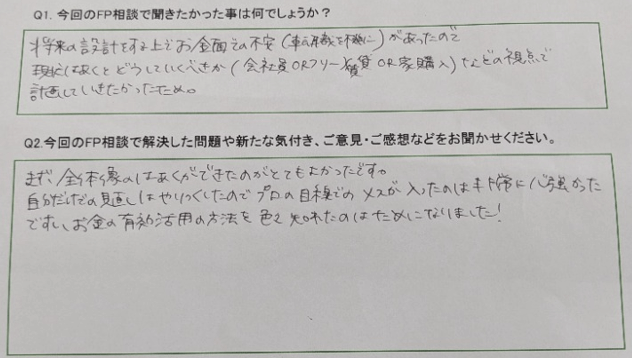 Q1. 今回のFP相談で聞きたかった事は何でしょうか？
将来の設計をする上でお金面での不安（転職を機に）があったので
現状はあくとどうしていくべきか（会社員ORフリー）（賃貸OR家購入）などの視点で
計画していきたかったため。
Q2.今回のFP相談で解決した問題や新たな気付き、ご意見・ご感想などをお聞かせください。
まず全体像のはあくができたのがとてもよかったです。
自分だけでの見直しはやりつくしたのでプロの目線でのメスが入ったのは非常に心強かった
ですし、お金の有効活用の方法を色々知れたのはためになりました！